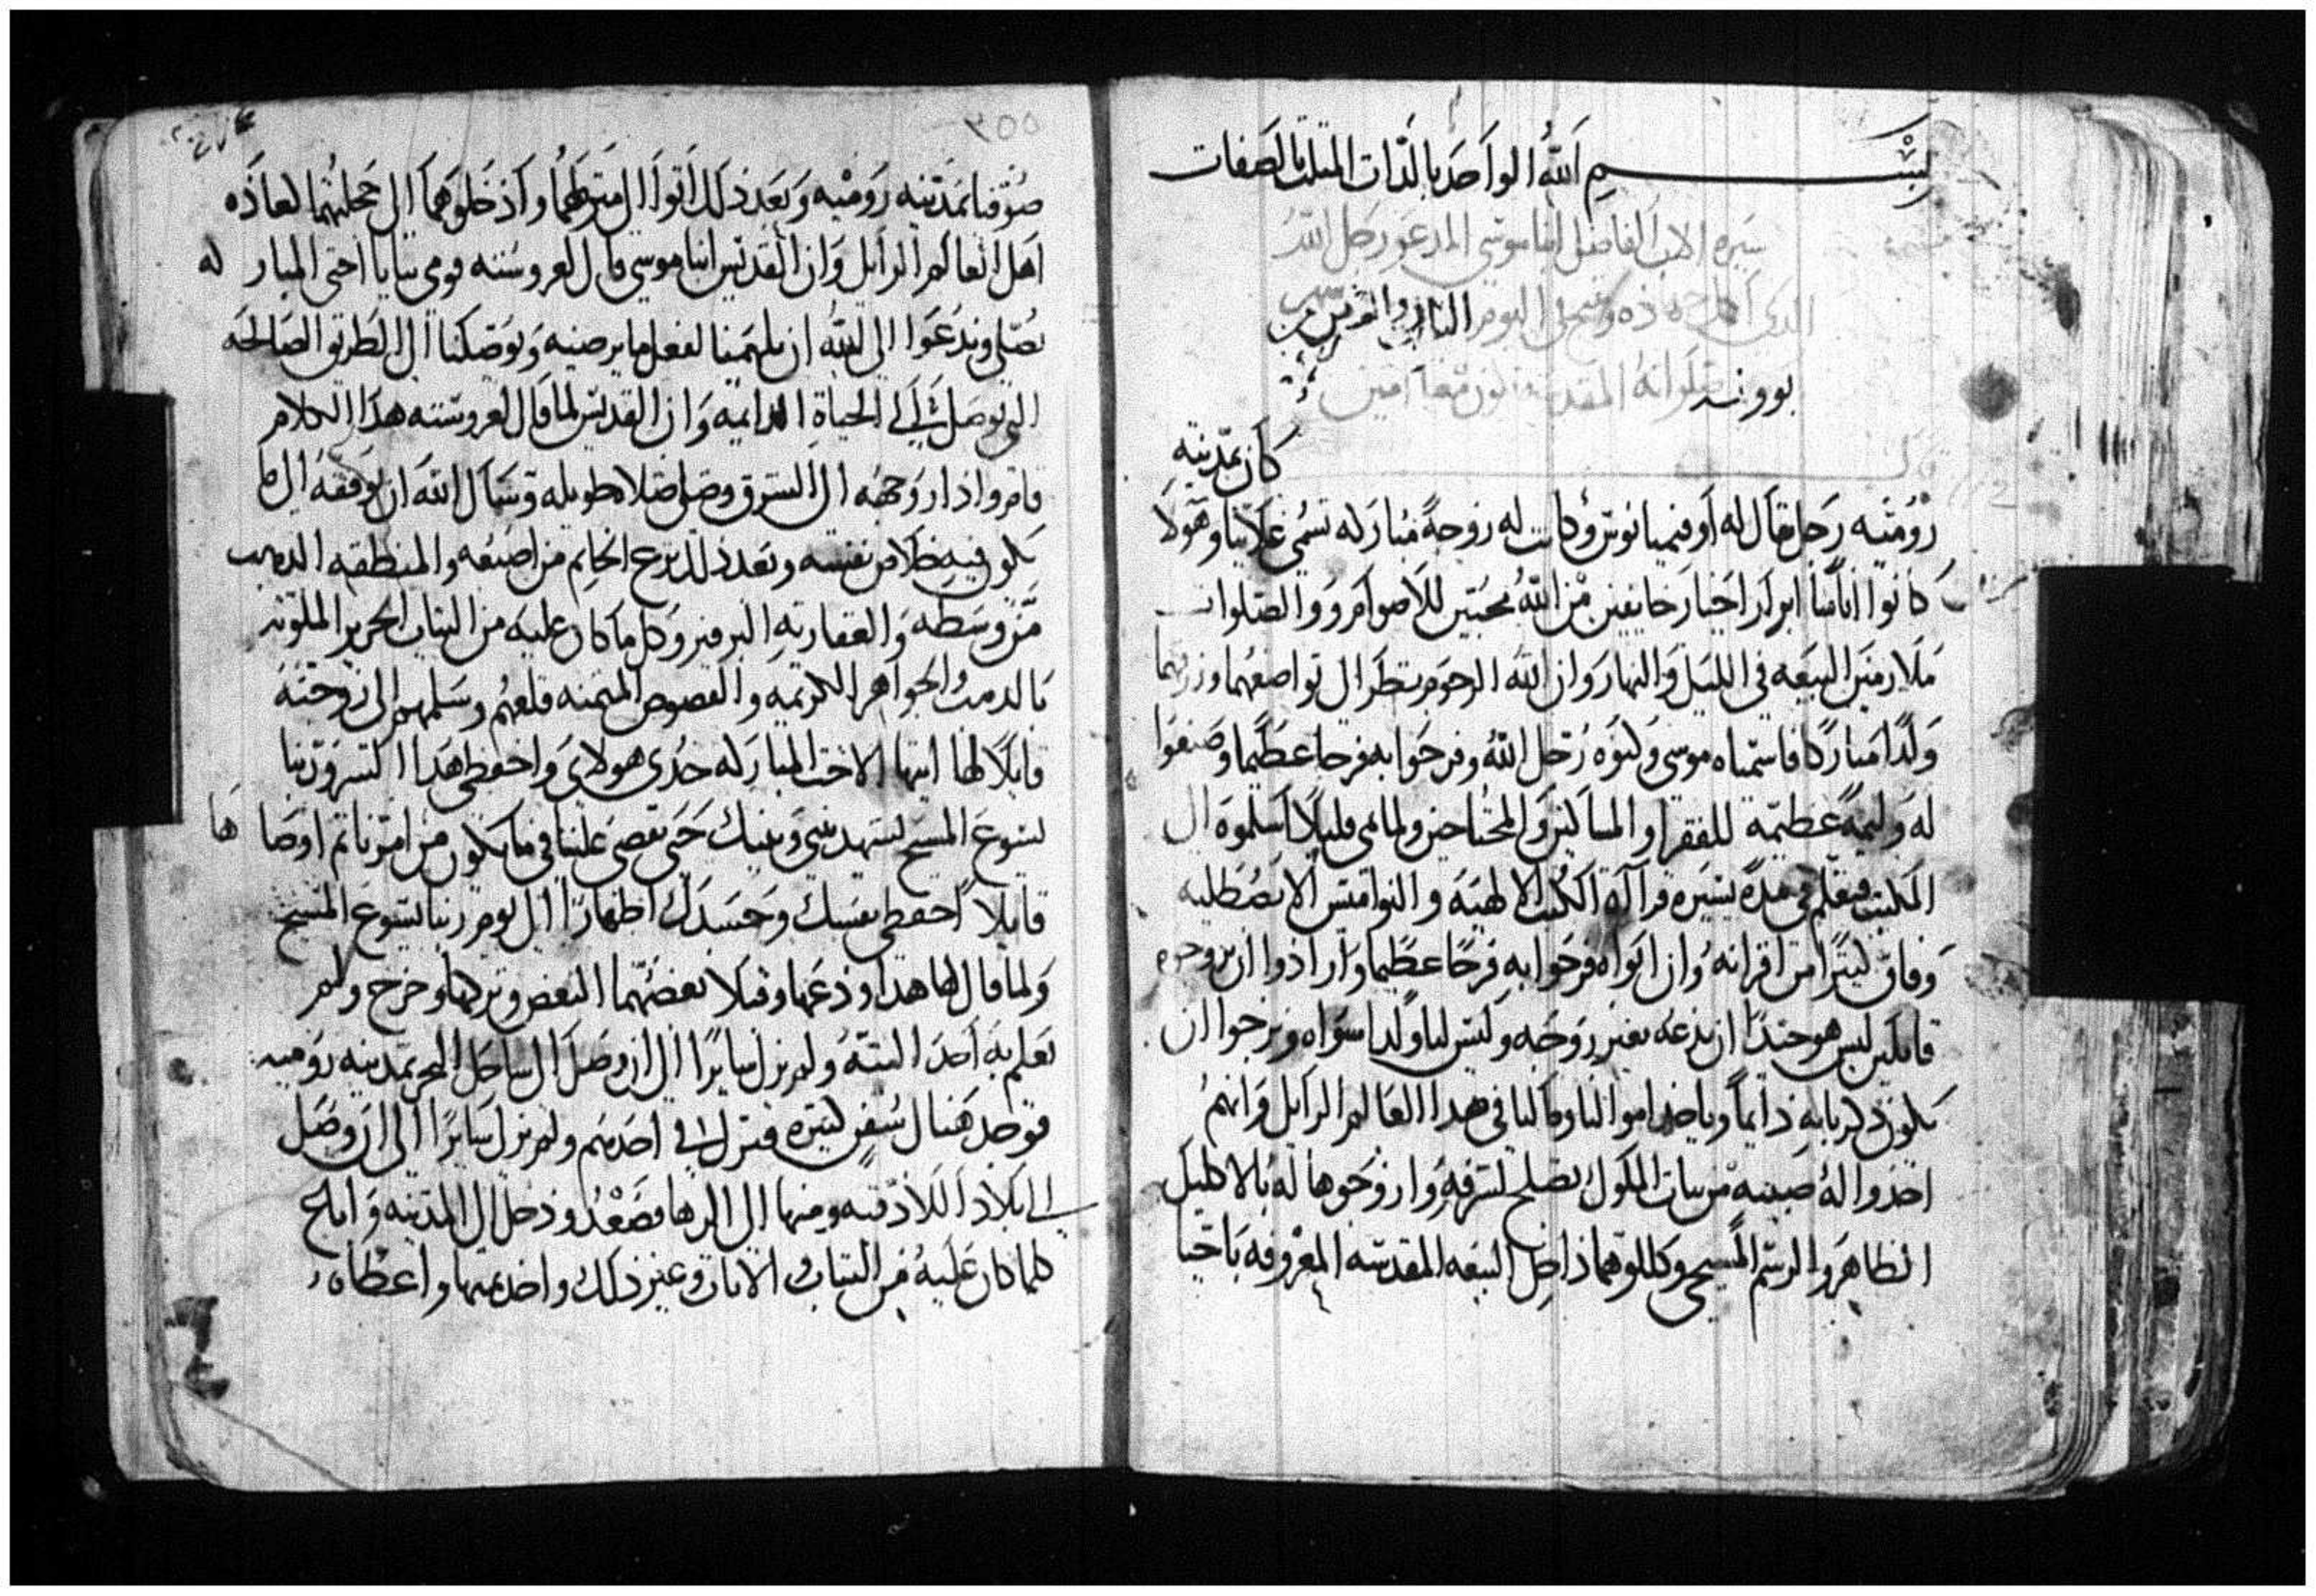 بسم الله الواحد بالذات المثلث بالصفات
سيره الاب الفاضل انبا موسى المدعو رجل الله
الذي في اليوم الثاني والعشرين من
بوونه صلواته المقدسه تكون معنا امين
كان بمدينه
روميه رجل يقال له اوفيميانوس وكانت له زوجة مباركه تسمى غلانيا وهولا
كانوا اناسا ابرار اخيار خايفين من الله محبين للاصوام والصلوات
ملازمين البيعه في الليل والنهار وان الله الرحوم نظر الى تواضعهما وزرقهما
ولدا مباركا فاسمياه موسى وكنوه رجل الله وفرحوا به فرحا عظيما وصنعوا
له وليمة عظيمه للفقرا والمساكين والمحتاجين ولما نمى قليلا اسلموه الى
المكتب فتعلم في مدة يسيره قراآة الكتب الالهيه والنواميس الانصطليه
وفاق كثيرا من اقرانه وان ابواه فرحوا به فرحا عظيما وارادوا ان يزوجوه
قايلين ليس هو جيدا ان ندعه بغير زوجه وليس لنا ولدا سواه ونرجوا ان
يكون ذكرنا به دايما وياخد اموالنا ومالنا في هدا العالم الزايل وانهم
اخدوا له صبيه من بنات الملوك تصلح لشرفه وازوجوها له بالاكليل
الطاهر والرسم المسيحي وكللوهما داخل البيعه المقدسه المعروفه باجيا
٣٥٥
صوفيا بمدينه روميه وبعد ذلك اتوا الى منزلهما وادخلوهما الى محلتهما كعاده
اهل العالم الزايل وان القديس انبا موسى قال لعروسته قومي بنا يا اختي المباركه
نصلي وندعوا الى الله ان يلهمنا لفعل ما يرضيه ويوصلنا الى الطريق الصالحه
التي توصل الى الحياة الدايمه وان القديس لما قال لعروسته هدا الكلام
قامروا دار وجهه الى الشرق وصلى صلاه طويله وسال الله ان يوفقه الى ما
يكون فيه خلاص نفسه وبعد ذلك نزع الخاتم من اصبعه والمنطقه الدهب
من وسطه والغفاريه البرفير وكل ما كان عليه من التياب الحرير الملونه
بالدهب والجواهر الكريمه والفصوص المتمنه قلعهم وسلمهم الى زوجته
قايلا لها ايتها الاخت المباركه خدي هولاي واحفظي هدا السر وربنا
يسوع المسيح يشهد بيني وبينك حتى يقضى علينا في ما يكون من امرنا تم اوصاها
قايلا احفظي نفسك وجسدك اطهارا الى يوم ربنا يسوع المسيح
ولما قال لها هدا ودعها وقبلا بعضهما البعض وتركها وخرج ولم
تعلم به احد البته ولم يزل سايرا الى ان وصل الى ساحل البحر بمدينه روميه
فوجد هناك سفن كتيره فنزل في احدهم ولم يزل سايرا الى ان وصل
الى بلاد اللادقيه ومنها الى الرها فصعد ودخل الى المدينه واباع
كلما كان عليه من التياب والاتاث وغير ذلك واخد تمنها واعطاه